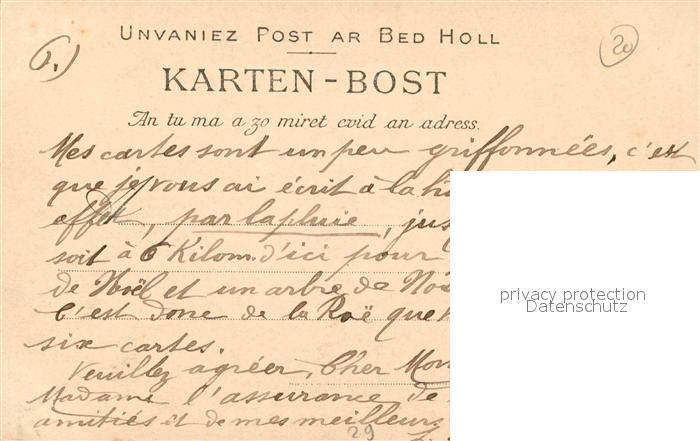 6.)
20
UNVANIEZ POST AR BED HOLL
KARTEN-BOST
An tu ma a zo miret evid an adress.
Mes cartes sont un peu griffonnées, c'est
que je vous ai écrit à la
effet, par la pluie, jus
soit à 6 Kilom. d'ici pour
de Noël et un arbre de No
C'est donc de la Roë que
six cartes.
Veuillez agréer, Cher Mon
Madame l'assurance de
amitiés et de mes meilleurs
29
privacy protection
Datenschutz